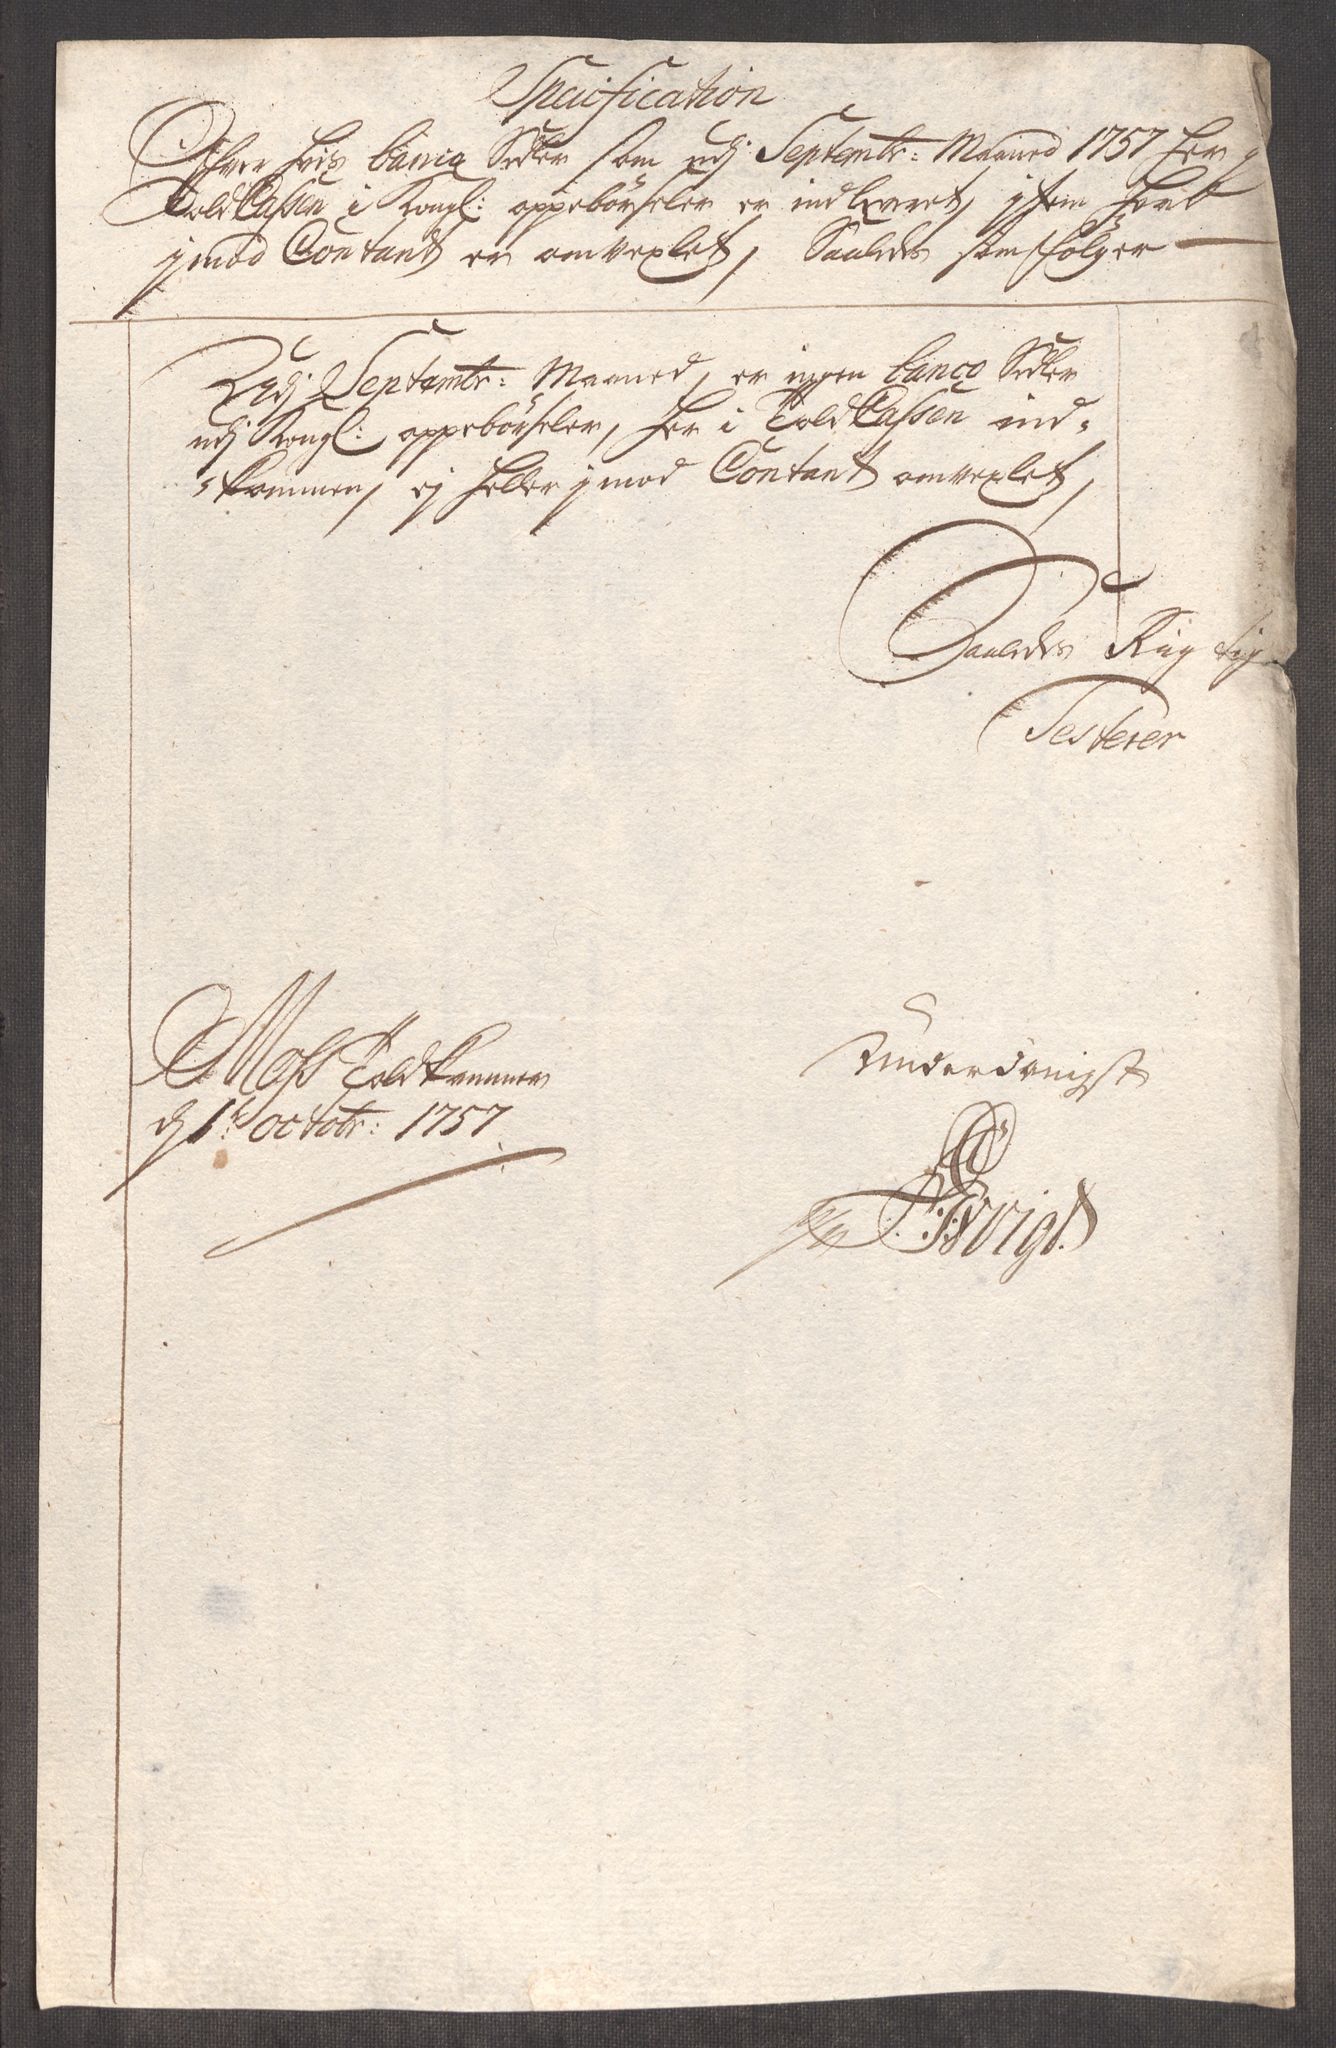 Specification
Ofver hvis banco Sedler som udj Septembr: Maaned 1757 her j
Told Cassen i Kongl: oppebørseler er indleveret, jtem hvad
jmod Contant er omvexlet, Saaledes som følger
Udj Septembr: Maaned, er ingen banco Sedler
udj Kongl: oppebørseler, her i Told Cassen ind-
-kommen, ej heller jmod Contant omvexlet,
Saaledes Rigtig
Testerer
Moss Toldkammer
d 1te octobr: 1757
Underdanigst
Voigt